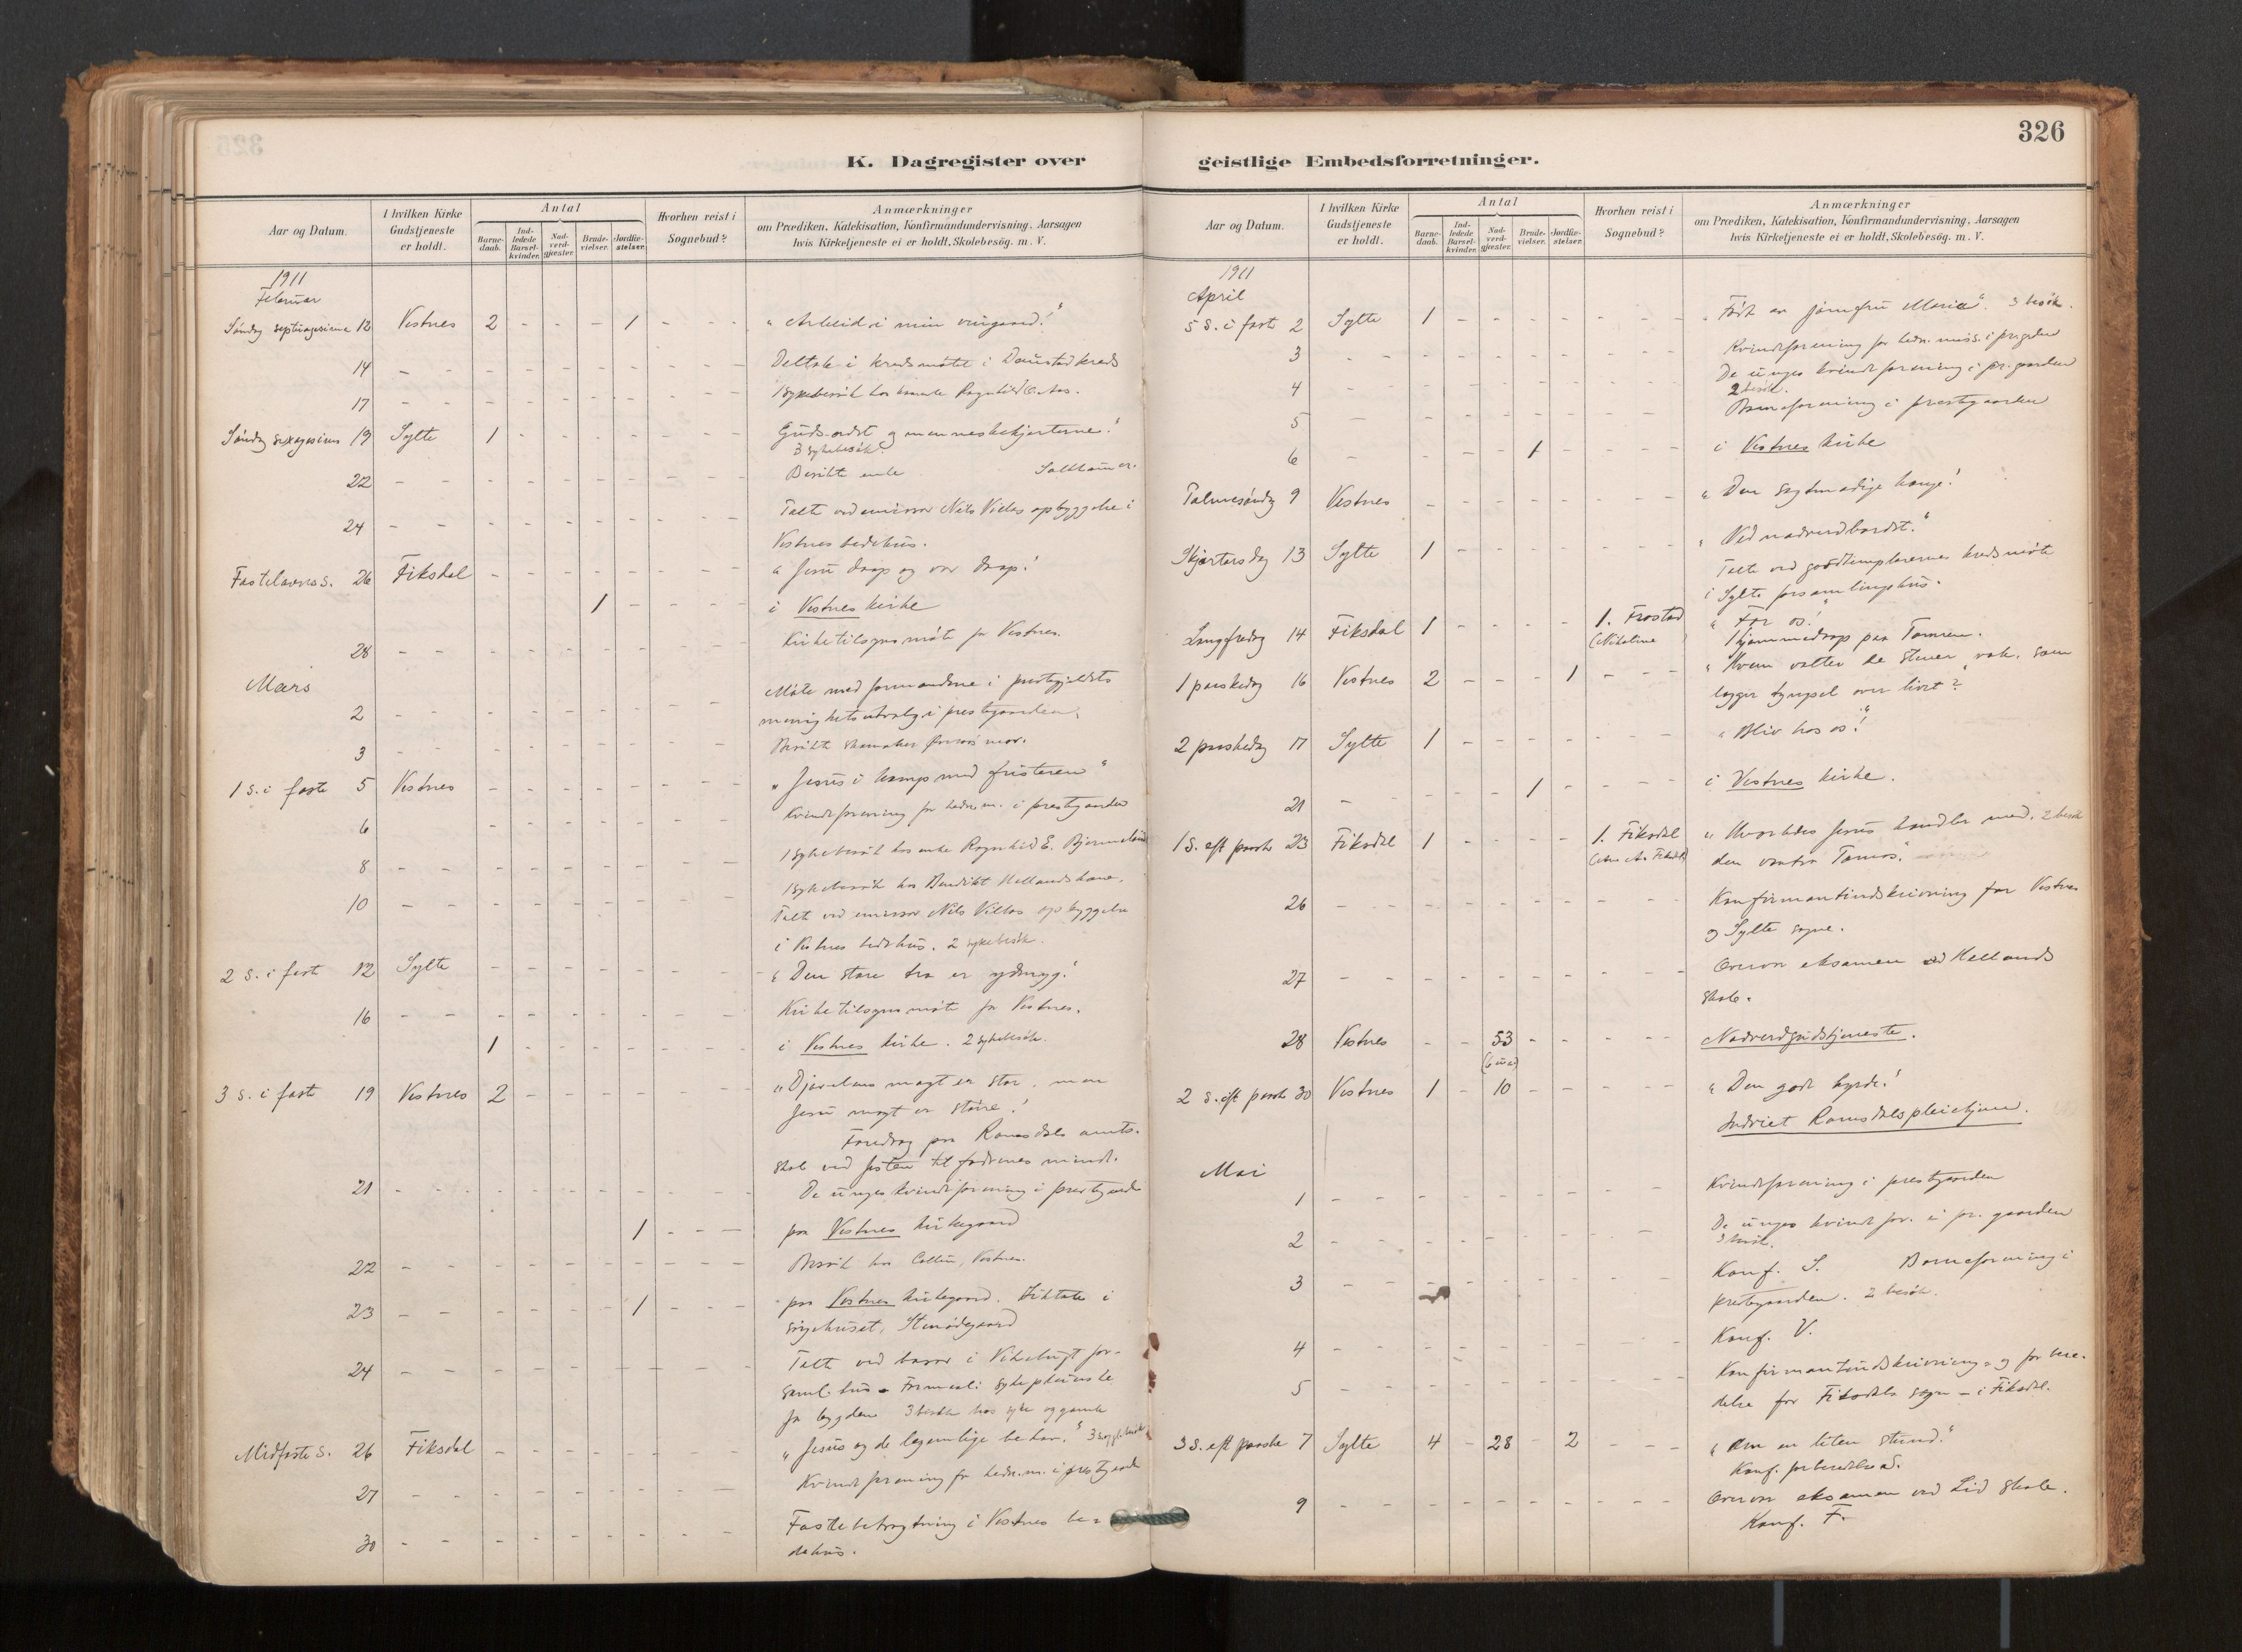 326
K. Dagregister over geistlige Embedsforretninger.
Aar og Datum.
I hvilken Kirke Gudstjeneste er holdt.
Antal
Barne-daab.
Ind-ledede Barsel-kvinder.
Nad-verd-gjæster.
Brude-vielser.
Jordfæ-stelser.
Hvorhen reist i Sognebud?
Anmærkninger
om Prædiken, Katekisation, Konfirmandundervisning, Aarsagen
hvis Kirketjeneste ei er holdt, Skolebesög. m. V.
1911
Februar
Søndag septuagesima 12 Vestnes 2 - - - 1 - - - "Arbeid i min vingaard!"
14 - - - - - - - - Deltok i kredsmøtet i Daugstad kreds
17 - - - - - - - - 1 sykebesøk hos
Søndag sexagesima 19 Sylte 1 - - - - - - - Guds ordet og menneskehjerterne."
3 sykebesøk.
22 - - - - - - - - Besøkte enke
24 - - - - - - - - Talte ved emissær Nils Villas opbyggelse i
Vestnes bedehus.
Fastelavns s. 26 Fiksdal - - - - - - - - "Jesu daap og vor daap!"
1 - - - - i Vestnes kirke
28 - - - - - - - - Kirketilsynsmøte for Vestnes.
Mars
2 - - - - - - - - Møte med formændene i prestegjeldets
menighetsutvalg i prestegaarden.
3 - - - - - - - - Besøkte skomaker
1 S. i faste 5 Vestnes - - - - - - - - "Jesus i kamp med fristeren"
6 - - - - - - - Kvindeforening for hedn.m. i prestegaarden
8 - - - - - - - - 1 sykebesøk hos enke Ragnhild E.
10 - - - - - - - - 1 sykebesøk hos Bendikt Hellandshavn.
Talt ved emissær Nils Villas opbyggelse
i Vestnes bedehus. 2 sykebesøk.
2 S. i fast 12 Sylte - - - - - - - - "Den store tro er ydmyg."
16 - - - - - - - - Kirketilsynsmøte for Vestnes.
1 - - - - - - - i Vestnes kirke. 2 sykebesøk.
3 S. i fast 19 Vestnes 2 - - - - - - "Djævelens magt er stor, men
Jesu magt er større."
Foredrag paa Romsdals amts-
skole ved festen til fædrenes minde.
21 - - - - - - - - De unges kvindeforening i prestegaarden
1 - - - paa Vestnes kirkegaard
22 - - - - - - - - Besøk hos Collin, Vestnes.
23 - - - - - 1 - - - paa Vestnes kirkegaard. Liktale i
sørgehuset, Stenødegaard
24 - - - - - - - - Talt ved basar i Vikebugt for-
saml. hus - Formaal: sykepleierske
for bygden 3 besøk hos syke og gamle
Midfaste s. 26 Fiksdal - - - - - - - - "Jesus og de legemlige behov." 3 sykebesøk
27 - - - - - - - - Kvindeforening for hedn.m. i prestegaard
30 - - - - - - - - Fastebetragtning i Vestnes be-
dehus.
1911
April
5 S. i fast 2 Sylte 1 - - - - - - - "Født av jomfru Maria". 3 besøk.
3 - - - - - - - - Kvindeforening for hedn. miss. i prgrden
4 - - - - - - - - De unges kvindeforening i pr.gaarden
2 besøk.
5 - - - - - - - - Barneforening i prestegaarden
6 - - - - 1 - - - - i Vestnes kirke
Palmesøndag 9 Vestnes - - - - - - - - "Den sagtmodige konge!"
Skjærtorsdag 13 Sylte 1 - - - - - - - "Ved nadverdbordet."
Talte ved godtemplarernes kredsmøte
i Sylte forsamlingshus.
Langfredag 14 Fiksdal 1 - - - - 1. Frostad "For os!"
(Nikoline ) 1 hjemmedaap paa Tomren.
1 paaskedag 16 Vestnes 2 - - - 1 - - "Hvem vælter de stener væk, som
lægger tyngsel over livet?"
2 paaskedag 17 Sylte 1 - - - - - - - "Bliv hos os!"
21 - - - - 1 - - - - i Vestnes kirke.
1 S. eft paaske 23 Fiksdal 1 - - - - 1. Fiksdal "Hvorledes Jesus handler med 2 besøk
den vantro Tomas."
26 - - - - - - - - Konfirmantindskrivning for Vestnes
og Sylte sogne.
27 - - - - - - - - Overvar eksamen ved Hellands
skole.
28 Vestnes - - 53 - - - - - Nadverdgudstjeneste.
2 S. eft paaske 30 Vestnes 1 - 10 - - - - - "Den gode hyrde."
Indviet Romsdals pleiehjem.
Mai
1 - - - - - - - - Kvindeforening i prestegaarden
2 - - - - - - - - De unges kvindefor. i pr. gaarden
3 besøk.
3 - - - - - - - - Konf. S. Barneforening i
prestegaarden. 2 besøk.
4 - - - - - - - - Konf. V.
5 - - - - - - - - Konfirmantindskrivning og forbere-
delse for Fiksdals sogn - i Fiksdal.
3 S. eft paaske 7 Sylte 4 - 28 - 2 - - - "Om en liten stund."
Konf. forberedelse
9 - - - - - - - - Overvar eksamen ved Lid skole.
Konf. F.